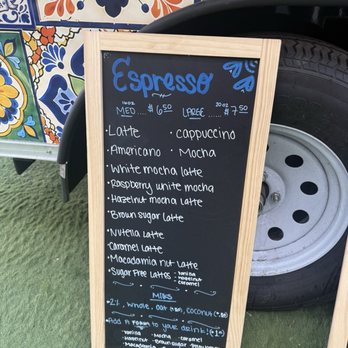 Espresso
16oz 20 oz
MED.... $6.50 LARGE ..... $7.50
· Latte · cappuccino
· Americano · Mocha
· White mocha latte
· Raspberry white mocha
· Hazelnut mocha latte
· Brown sugar latte
· Nutella latte
· Caramel latte
· Macadamia nut latte
· Sugar free lattes - vanilla
- Hazelnut
- caramel
MILKS
· 2%, whole, oat, coconut
Add a foam to your drink!
· vanilla · Mocha · caramel
· Hazelnut · Brown sugar
· Macadamia